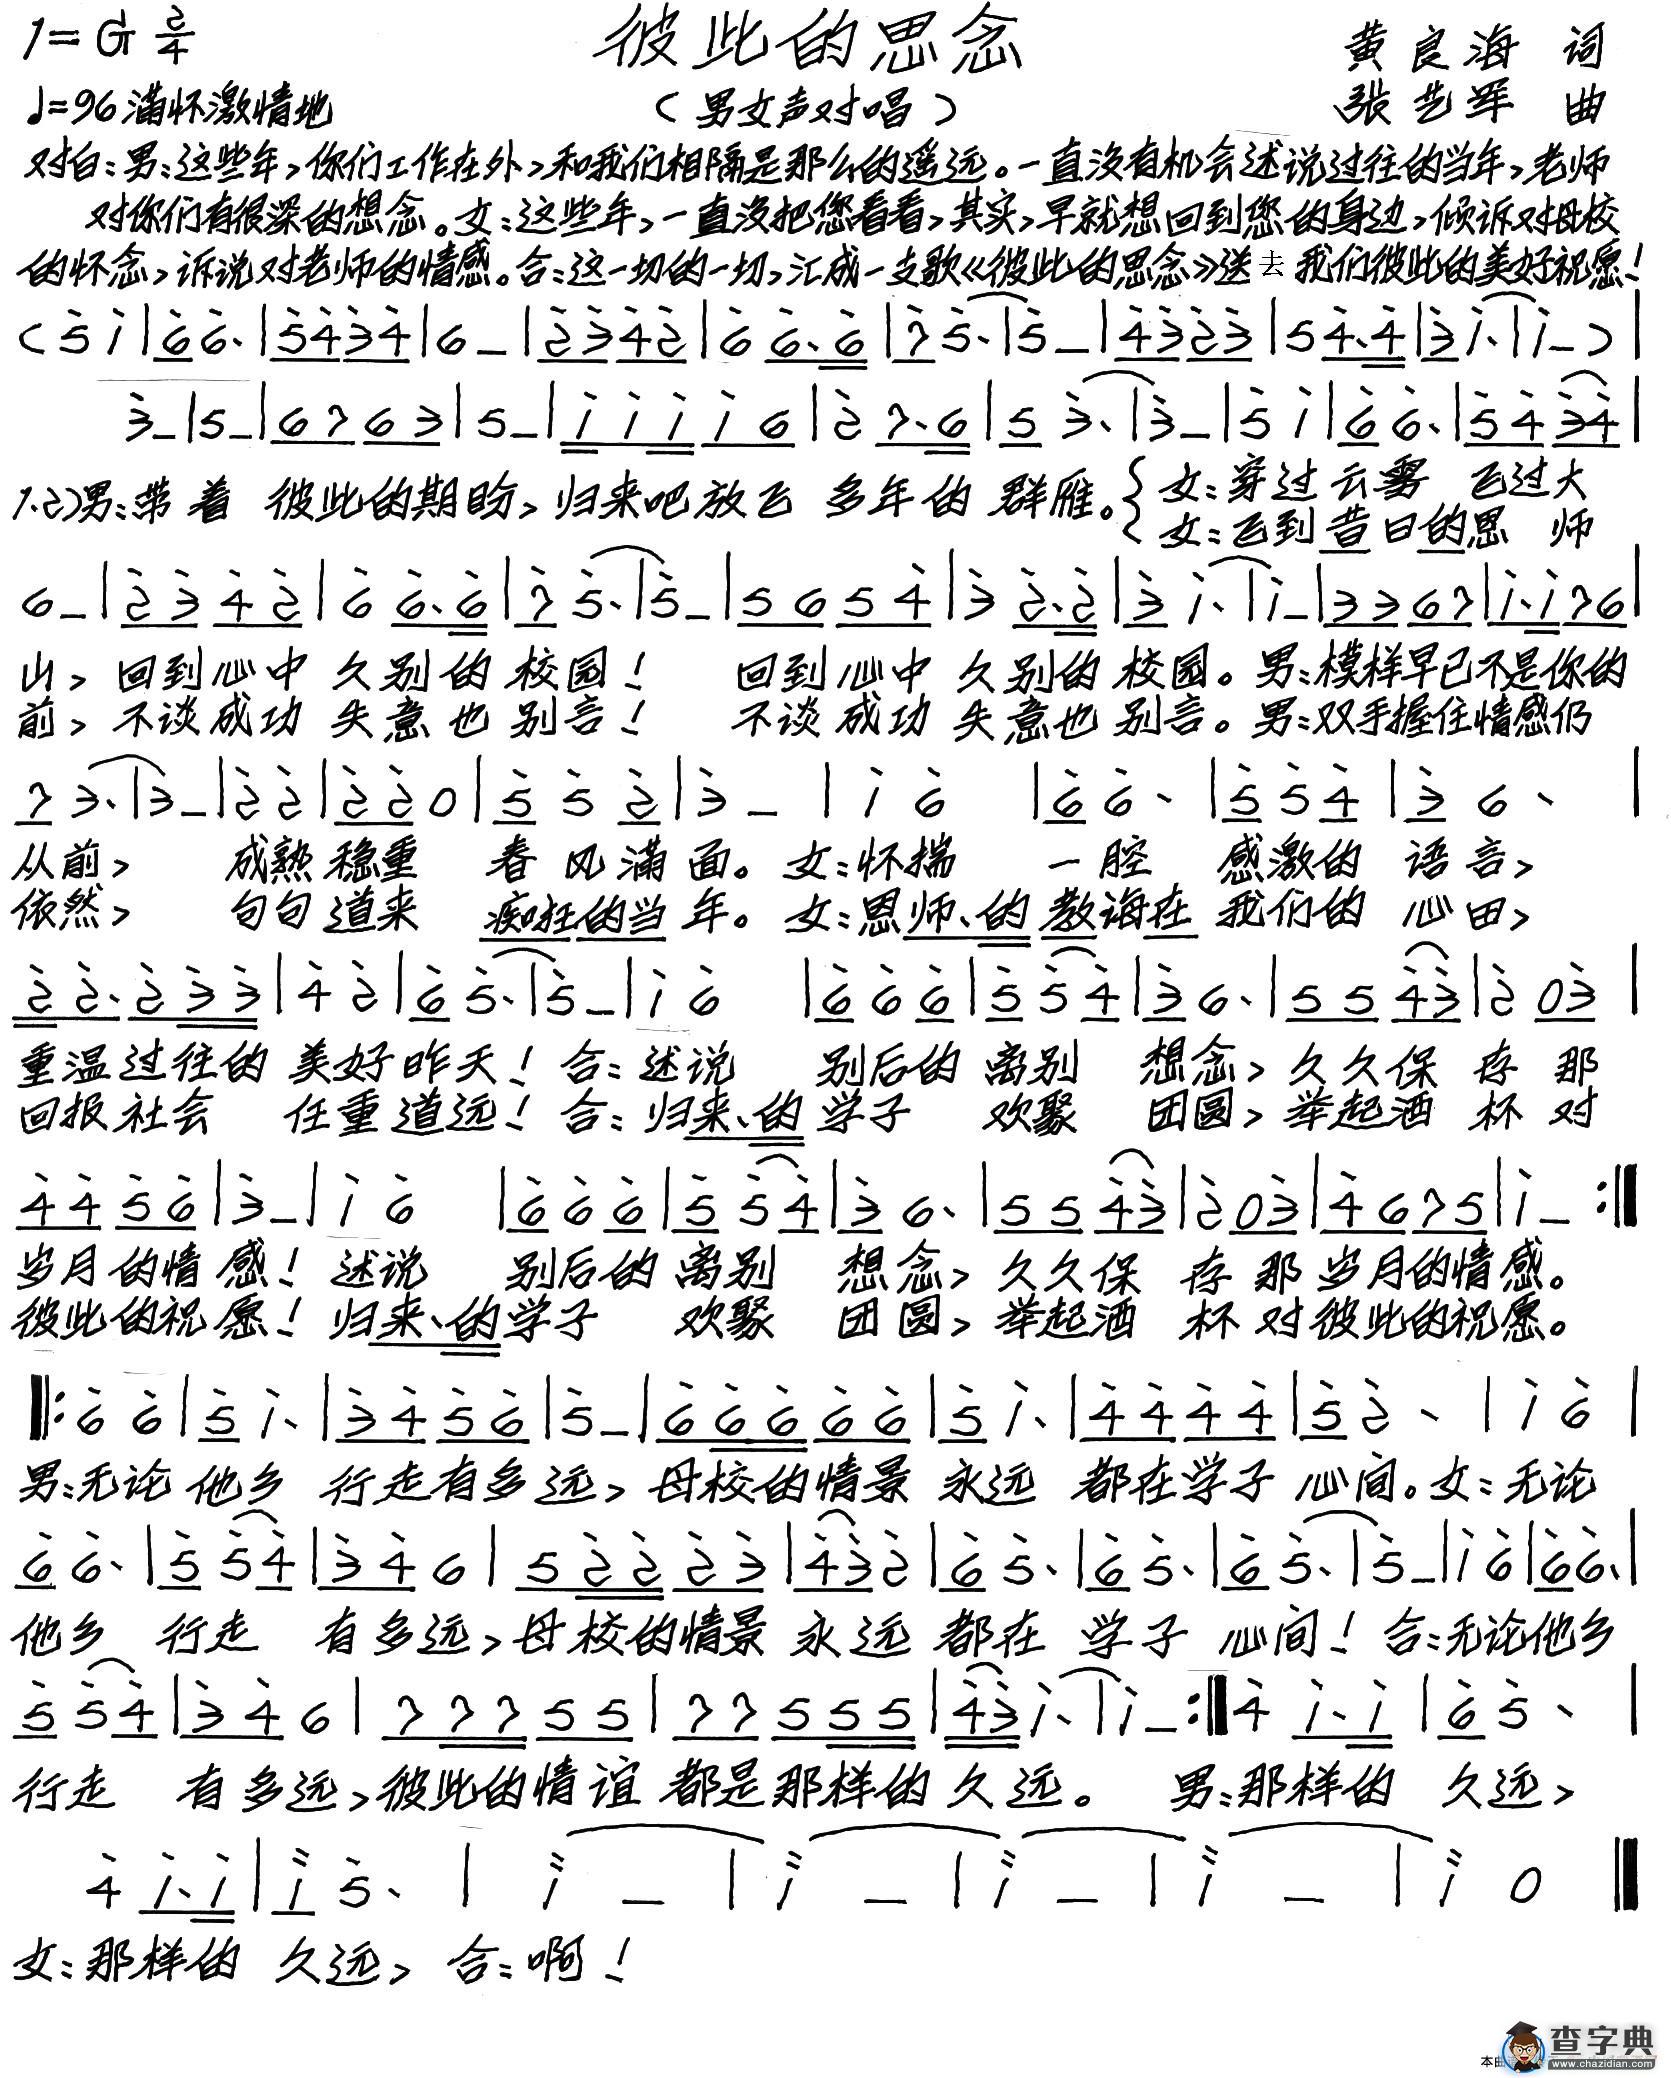 1=G 2/4 彼此的思念 黄良海 词
♩=96 满怀激情地 （男女声对唱） 张艺军 曲
对白:男:这些年,你们工作在外,和我们相隔是那么的遥远。一直没有机会述说过往的当年,老师
对你们有很深的想念。女:这些年,一直没把您看看,其实,早就想回到您的身边,倾诉对母校
的怀念,诉说对老师的情感。合:这一切的一切,汇成一支歌《彼此的思念》送去 我们彼此的美好祝愿!
(5 i|6 6.|5434|6 -|2342|6 6.6|7 5.|5 -|4323|5 4.4|3 i.|i -)|
3 -|5 -|6763|5 -|i i i i 6|2 7.6|5 3.|3 -|5 i|6 6.|5 4 34|
1.2)男:带着 彼此的期盼,归来吧放飞 多年的 群雁。{女:穿过云雾 飞过大
女:飞到昔日的恩 师
6 -|2 3 4 2|6 6.6|7 5.|5 -|5 6 5 4|3 2.2|3 i.|i -|3 3 6 7|i.i 7 6|
山, 回到心中 久别的校园! 回到心中 久别的校园。男:模样早已不是你的
前, 不谈成功 失意也别言! 不谈成功 失意也别言。男:双手握住情感仍
7 3.|3 -|2 2|2 2 0|5 5 2|3 -|i 6|6 6.|5 5 4|3 6.|
从前, 成熟稳重 春风满面。女:怀揣 一腔 感激的 语言,
依然, 句句道来 痴狂的当年。女:恩师、的教诲在 我们的 心田,
2 2.2 3 3|4 2|6 5.|5 -|i 6|6 6 6|5 5 4|3 6.|5 5 4 3|2 0 3|
重温过往的 美好昨天! 合:述说 别后的离别 想念, 久久保 存 那
回报社会 任重道远! 合:归来、的学子 欢聚 团圆, 举起酒 杯 对
4 4 5 6|3 -|i 6|6 6 6|5 5 4|3 6.|5 5 4 3|2 0 3|4 6 7 5|i - :‖
岁月的情感! 述说 别后的离别 想念, 久久保 存 那 岁月的情感。
彼此的祝愿! 归来、的学子 欢聚 团圆, 举起酒 杯 对彼此的祝愿。
‖:6 6|5 i.|3 4 5 6|5 -|6 6 6 6 6|5 i.|4 4 4 4|5 2.|i 6|
男:无论 他乡 行走有多远, 母校的情景 永远 都在学子 心间。女:无论
6 6.|5 5 4|3 4 6|5 2 2 2 3|4 3 2|6 5.|6 5.|6 5.|5 -|i 6|6 6.|
他乡 行走 有多远, 母校的情景 永远 都在 学子 心间! 合:无论他乡
5 5 4|3 4 6|7 7 7 5 5|7 7 5 5 5|4 3 i.|i - :‖4 i.i|6 5.|
行走 有多远,彼此的情谊 都是那样的久远。 男:那样的 久远,
4 i.i|i 5.|i -|i -|i -|i -|i 0‖
女:那样的 久远, 合:啊!
查字典
www.chazidian.com
本曲